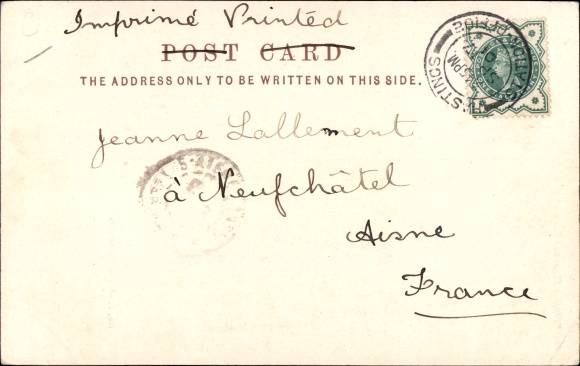 Imprimé Printed
POST CARD
THE ADDRESS ONLY TO BE WRITTEN ON THIS SIDE.
Jeanne Lallement
à Neufchâtel
Aisne
France